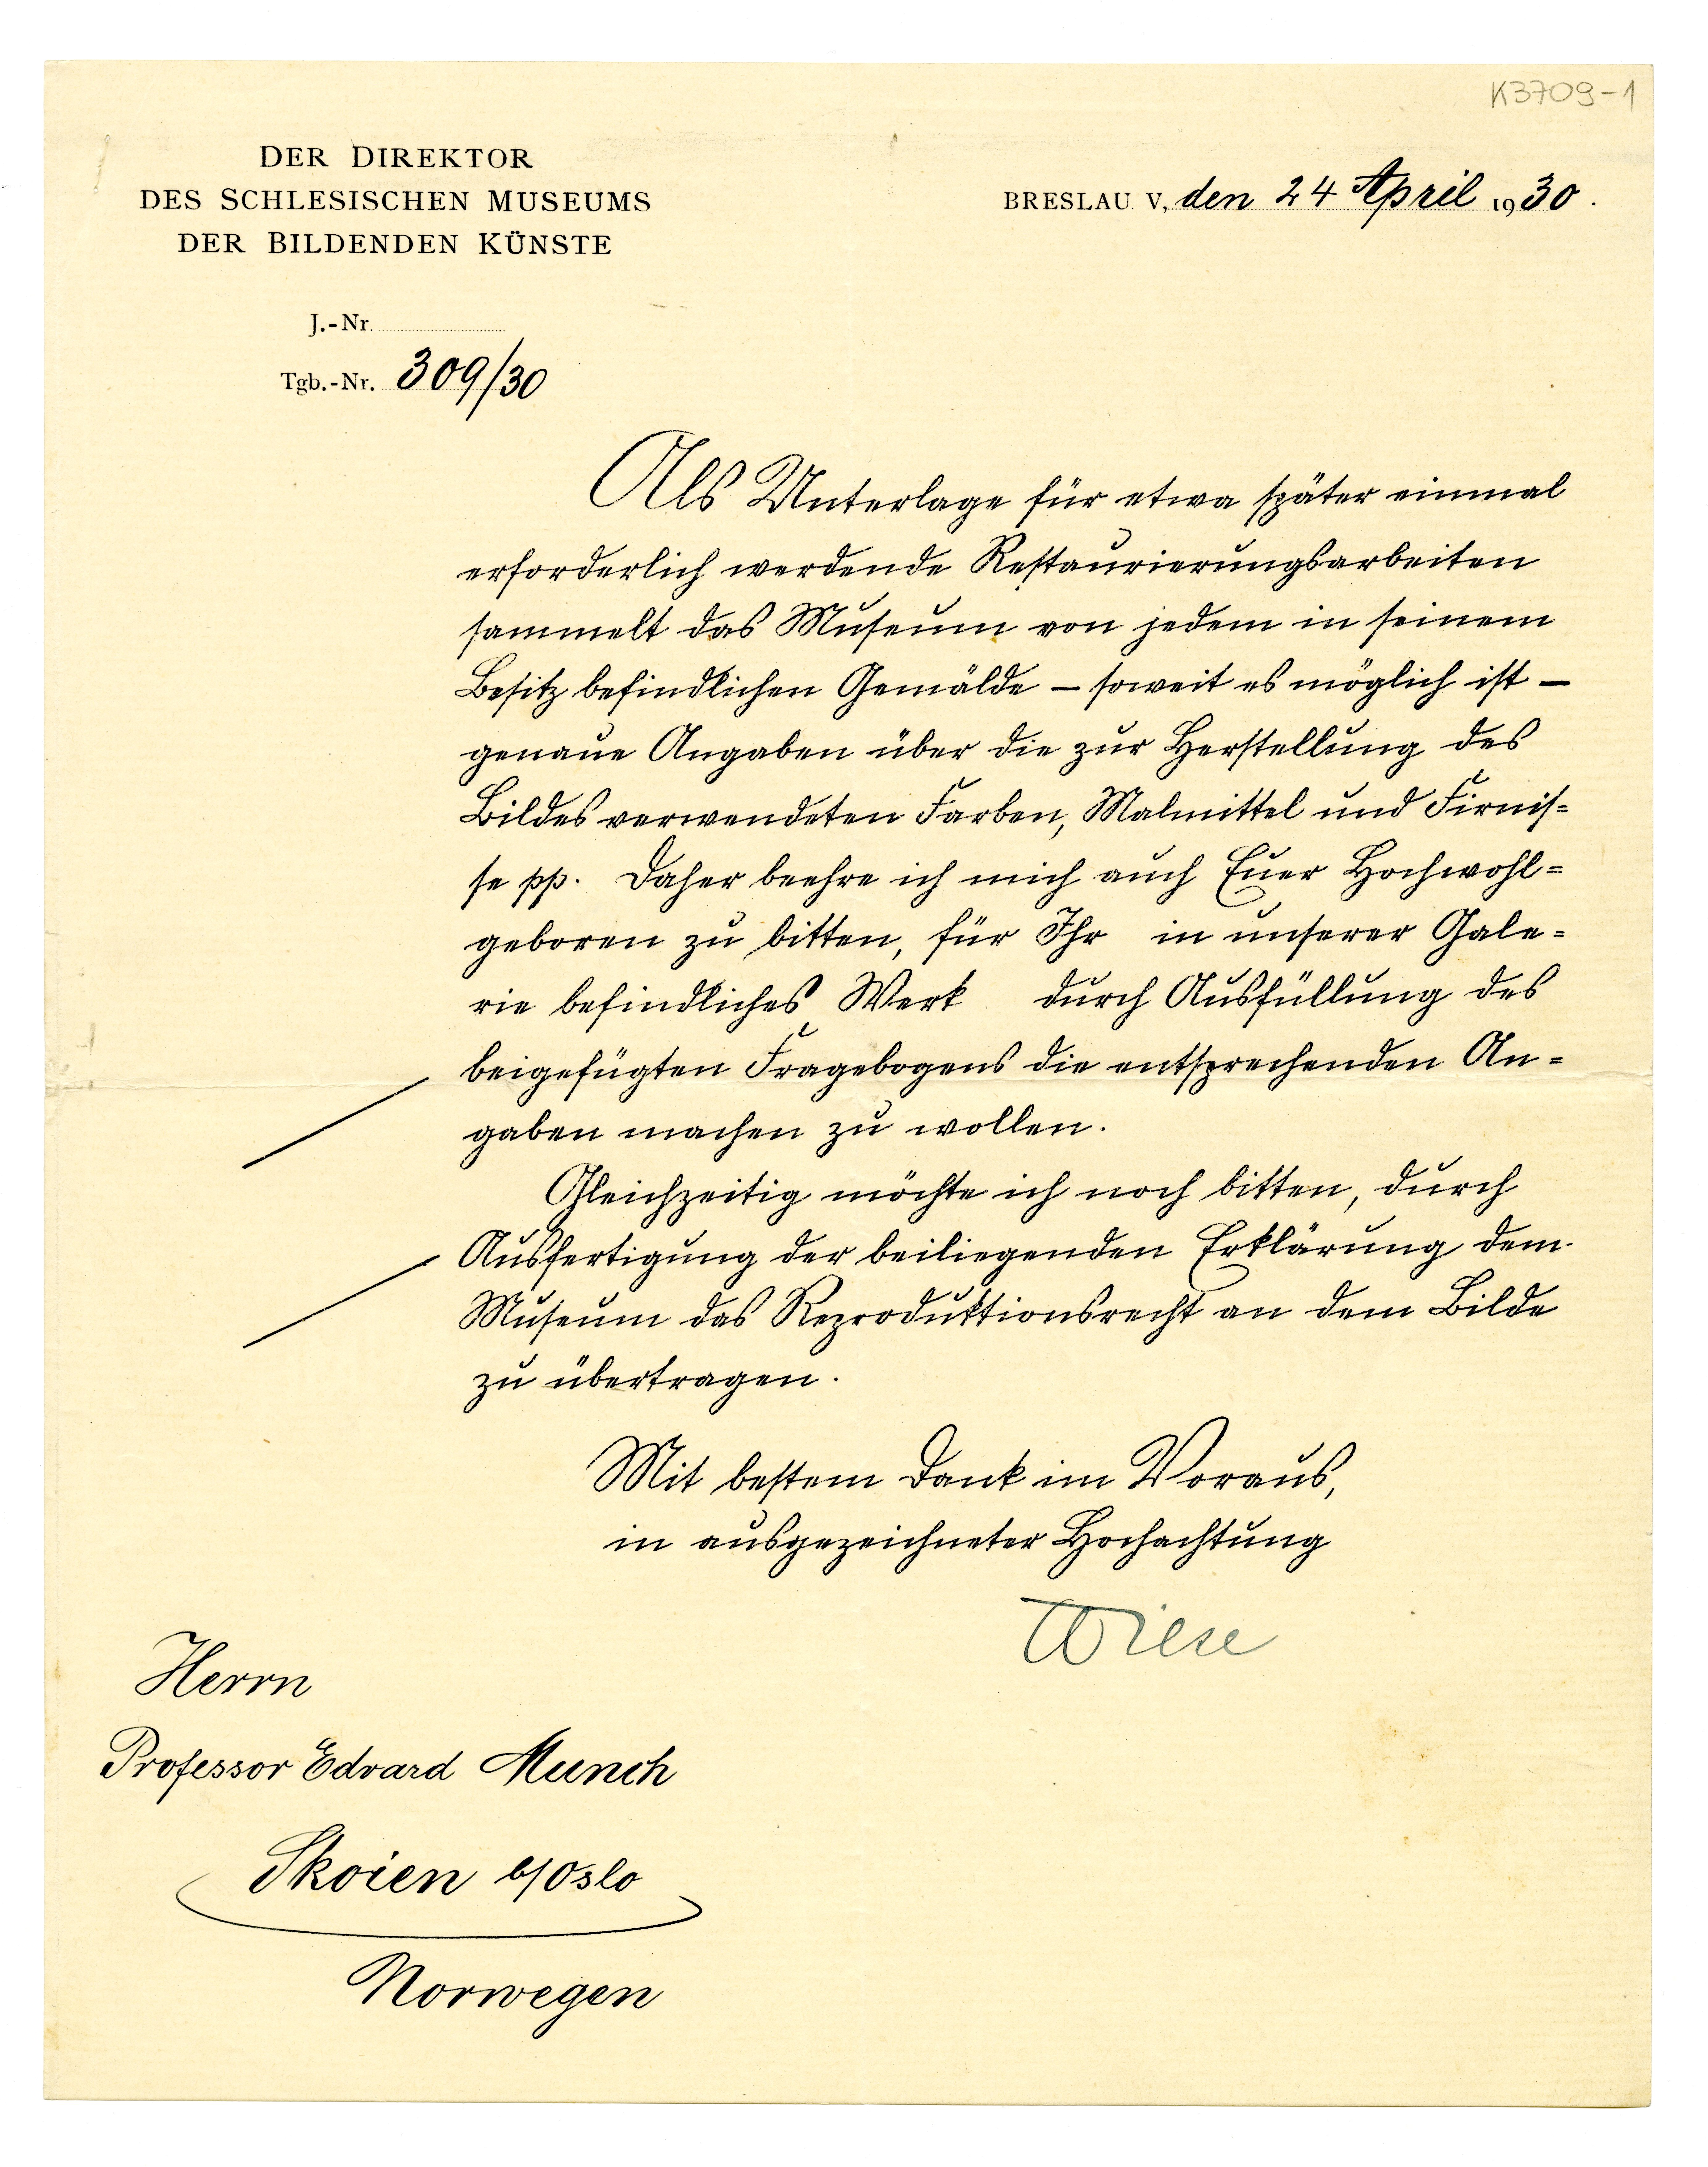 K3709-1
DER DIREKTOR
DES SCHLESISCHEN MUSEUMS
DER BILDENDEN KÜNSTE
BRESLAU V, den 24 April 1930.
J.-Nr.
Tgb.-Nr. 309/30
Als Unterlage für etwa später einmal
erforderlich werdende Restaurierungsarbeiten
sammelt das Museum von jedem in seinem
Besitz befindlichen Gemälde – soweit es möglich ist –
genaue Angaben über die zur Herstellung des
Bildes verwendeten Farben, Malmittel und Firnis=
se pp. Daher beehre ich mich auch Euer Hochwohl=
geboren zu bitten, für Ihr in unserer Gale=
rie befindliches Werk durch Ausfüllung des
beigefügten Fragebogens die entsprechenden An=
gaben machen zu wollen.
Gleichzeitig möchte ich noch bitten, durch
Ausfertigung der beiliegenden Erklärung dem
Museum das Reproduktionsrecht an dem Bilde
zu übertragen.
Mit bestem Dank im Voraus,
in ausgezeichneter Hochachtung
Wiese
Herrn
Professor Edvard Munch
Skoien b/Oslo
Norwegen